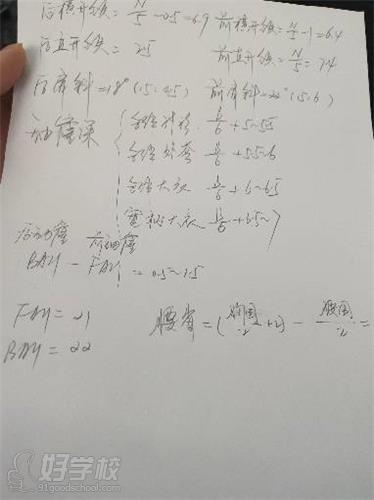 后横开领=N/5-0.5=6.9 前横开领=N/5-1=6.4
后直开领=2.5 前直开领=N/5=7.4
后肩斜=18°(15:4.5) 前肩斜=22°(15:6)
袖窿深
合体衬衫 B/6+5~5.5
合体外套 B/6+5.5~6
合体大衣 B/6+6~6.5
宽松大衣 B/6+6.5~7
后袖窿 前袖窿
BAH - FAH = 0.5~1.5
FAH=21
BAH=22
腰省=(胸围/2+2)-腰围/2=
好学校
www.91goodschool.com